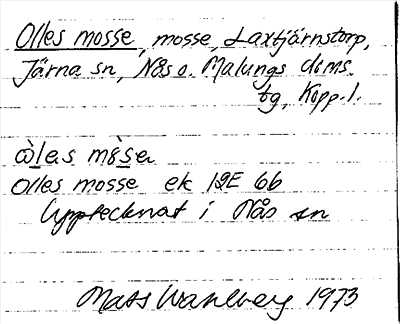 Olles mosse, mosse, Laxtjärnstorp,
Järna sn, Nås o. Malungs doms.
tg, Kopp. l.
òlas mòsen
Olles mosse ek 12E 6b
Upptecknat i Nås sn
Mats Wahlberg 1973